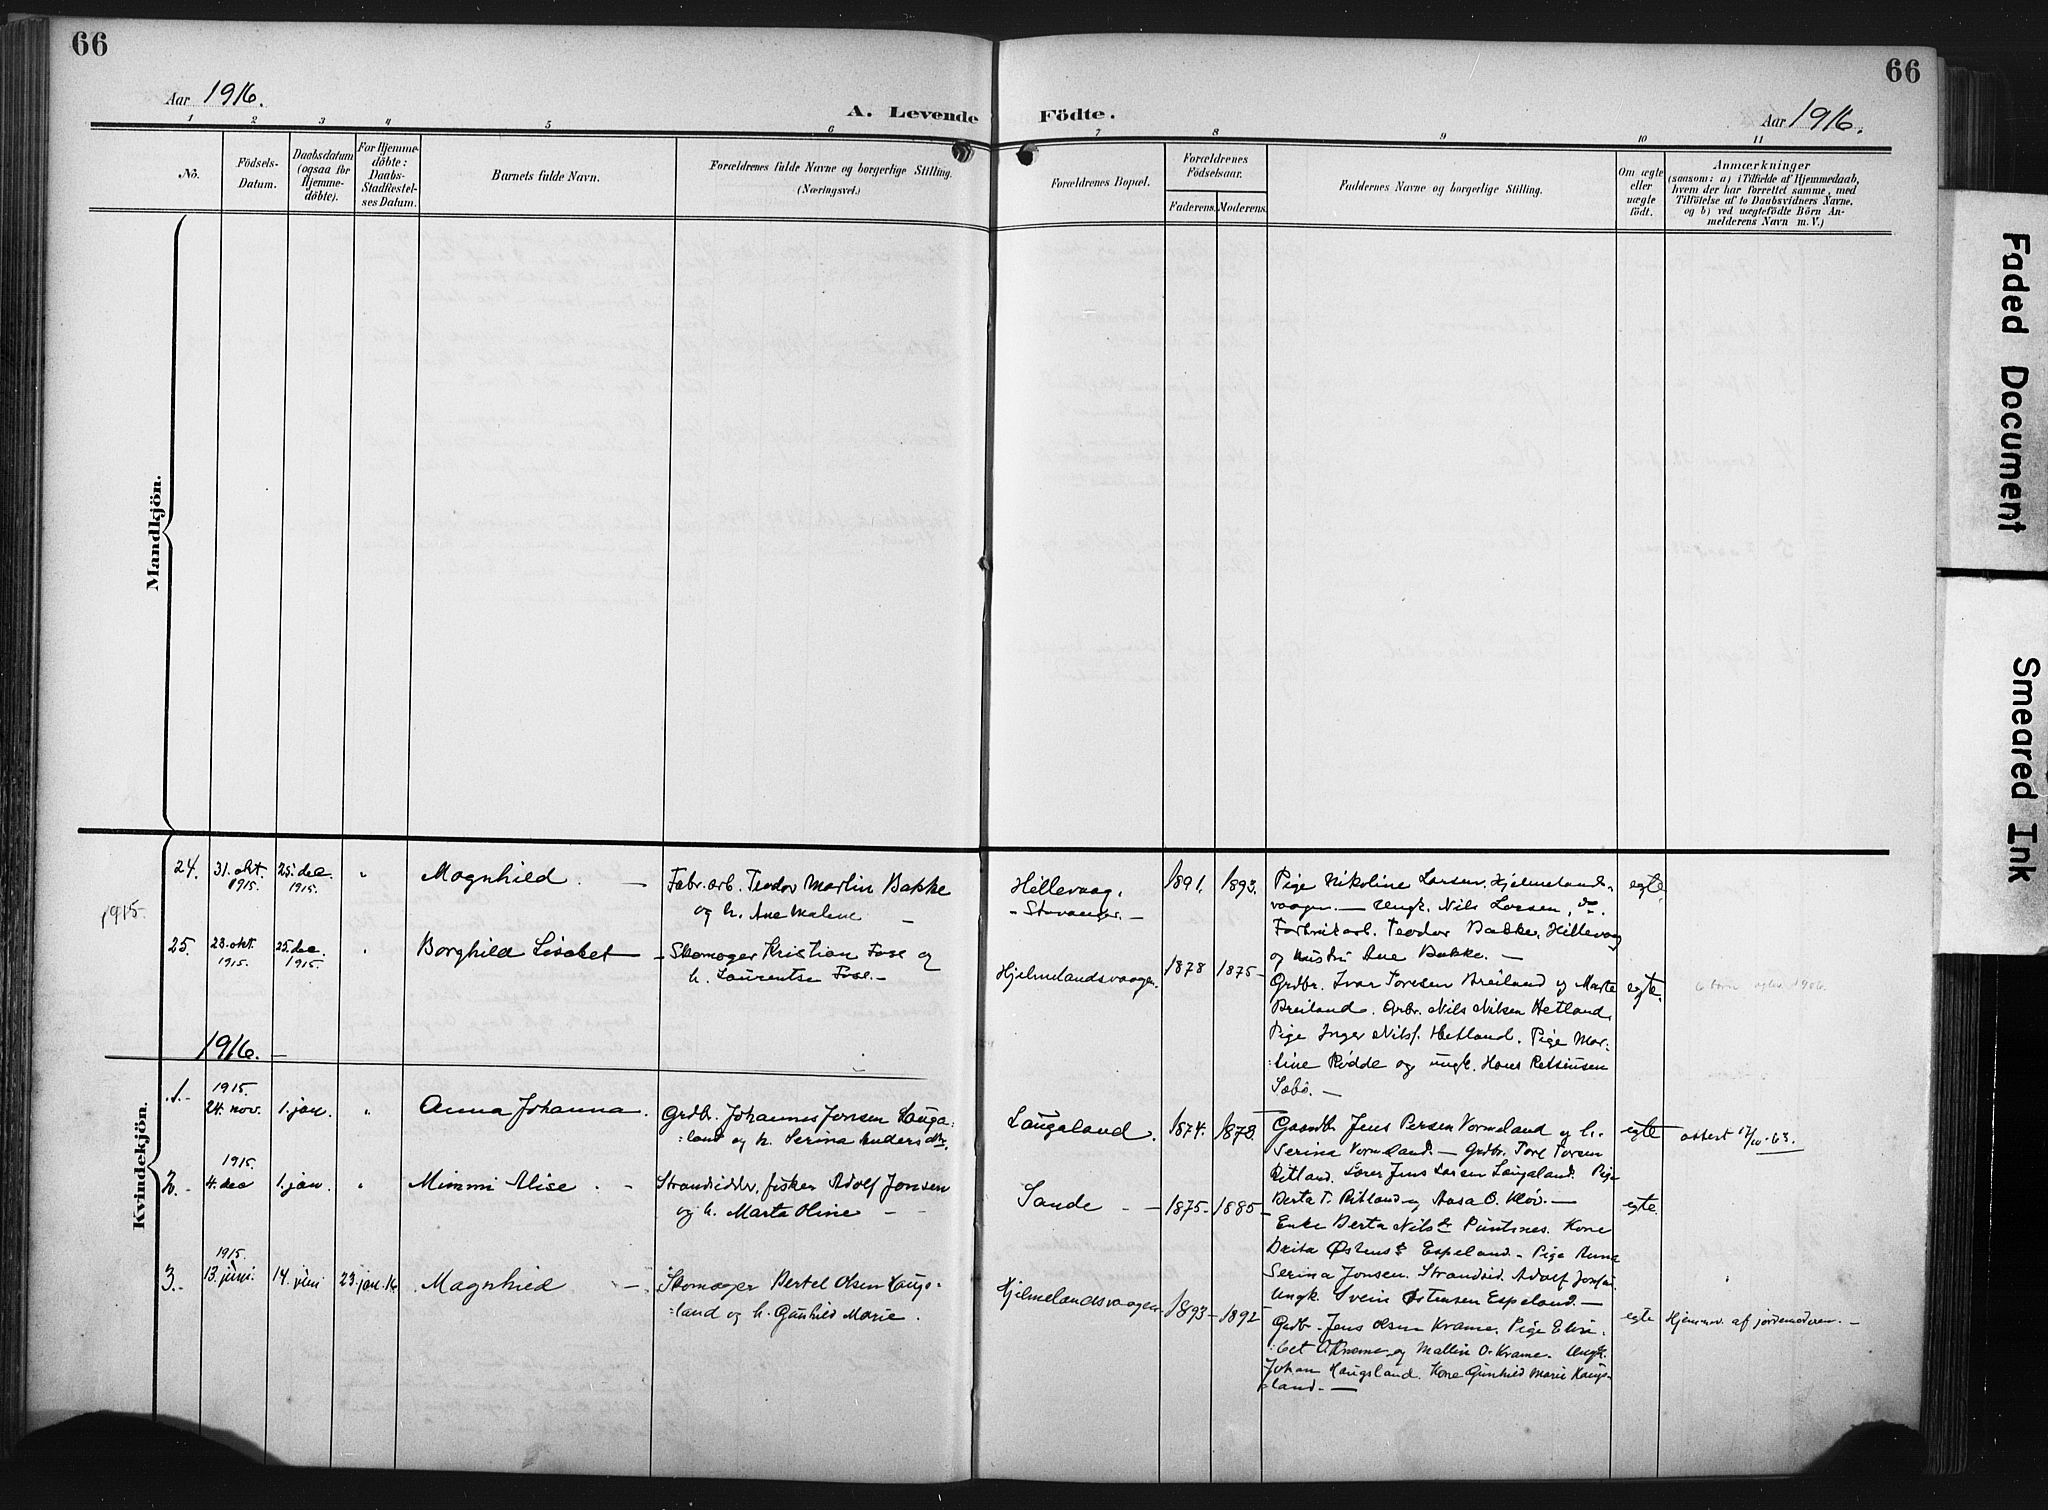 66
66
Aar 1916.
A. Levende Födte.
Aar 1916.
1 2 3 4 5 6 7 8 9 10 11
Nö.
Födsels-
Datum.
Daabsdatum
(ogsaa for
Hjemme-
döbte).
For Hjemme-
döbte:
Daabs-
Stadfæstel-
ses Datum.
Barnets fulde Navn.
Forældrenes fulde Navne og borgerlige Stilling.
(Næringsvei.)
Forældrenes Bopæl.
Forældrenes
Födselsaar.
Faderens. Moderens.
Faddernes Navne og borgerlige Stilling.
Om ægte
eller
uægte
födt.
Anmærkninger
(saasom: a) i Tilfælde af Hjemmedaab,
hvem der har forrettet samme, med
Tilföielse af to Daabsvidners Navne.
og b) ved uægtefödte Börn An-
melderens Navn m. V.)
Mandkjön.
Kvindekjön.
1915.
24.
31. okt.
1915.
25. dec.
1915.
"
Magnhild. —
Fabr. arb. Teodor Martin Bakke
og h. Ane Malene —
Hillevaag,
- Stavanger. -
1891. 1893.
Pige Nikoline Larsen, Hjelmelands-
vaagen. — Ungk. Nils Larsen, do.
Fabrikarb. Teodor Bakke, Hillevaag
og hustru Ane Bakke. —
egte.
25.
28. okt.
1915.
25. dec.
1915.
"
Borghild Lisabet —
Skomager Kristian Fose og
h. Laurentse Fose. -
Hjelmelandsvaagen.
1878 1875 -
Grdbr. Ivar Toresen Breiland og Marta
Breiland. Grbr. Nils Nilsen Hetland,
Pige Inger Nilsf. Hetland. Pige Mar-
tine Rødde og ungk. Hans
Sæbö. —
egte.
1916. —
1. -
1915.
24. nov.
1. jan.
"
Anna Johanna.
Grdbr. Johannes Jonsen Lauga-
land og h. Serina Andersdtr.
Laugaland.
1874. 1878.
Gaardbr. Jens Persen Vormeland og h.
Serina Vormeland. — Grdbr. Tore Toresen
Ritland. Lærer Jens Larsen Laugaland. Pige
Berta T. Ritland og Aasa O. —
egte
attest 17/10-63.
2. -
1915.
4. dec
1. jan.
"
Mimmi Alise. —
Strandsidder, fisker Adolf Jonsen
og h. Marta Oline —
Sande —
1875 - 1885 -
Enke Berta Nilsdt. Puntsnes. Kone
Brita Østensdt. Espeland. - Pige Anna
Serina Jonsen. Strandsid. Adolf Jonsen.
Ungk. Svein Østensen Espeland. —
egte.
3. -
1915.
13. juni.
14. juni
23. jan. 16
Magnhild —
Skomager Bertel Olsen Haugs-
land og h. Gunhild Marie.
Hjelmelandsvaagen
1893 - 1892
Grdbr. Jens Olsen Krame. Pige Elisa-
bet O. Krame og Mallin O. Krame. Ungk.
Johan Haugsland. Kone Gunhild Marie Haugs-
land. —
egte
Hjemmed. af jordemoderen. —
Faded Document
Smeared Ink